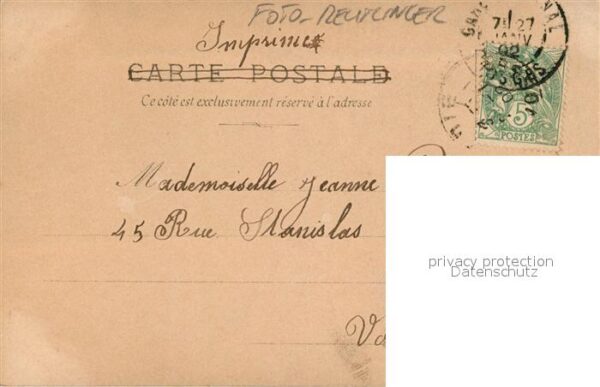 FOTO-REUTLINGER
Imprimé
CARTE POSTALE
Ce côté est exclusivement réservé à l'adresse
5
POSTES
Mademoiselle Jeanne
45 Rue Stanislas
privacy protection
Datenschutz